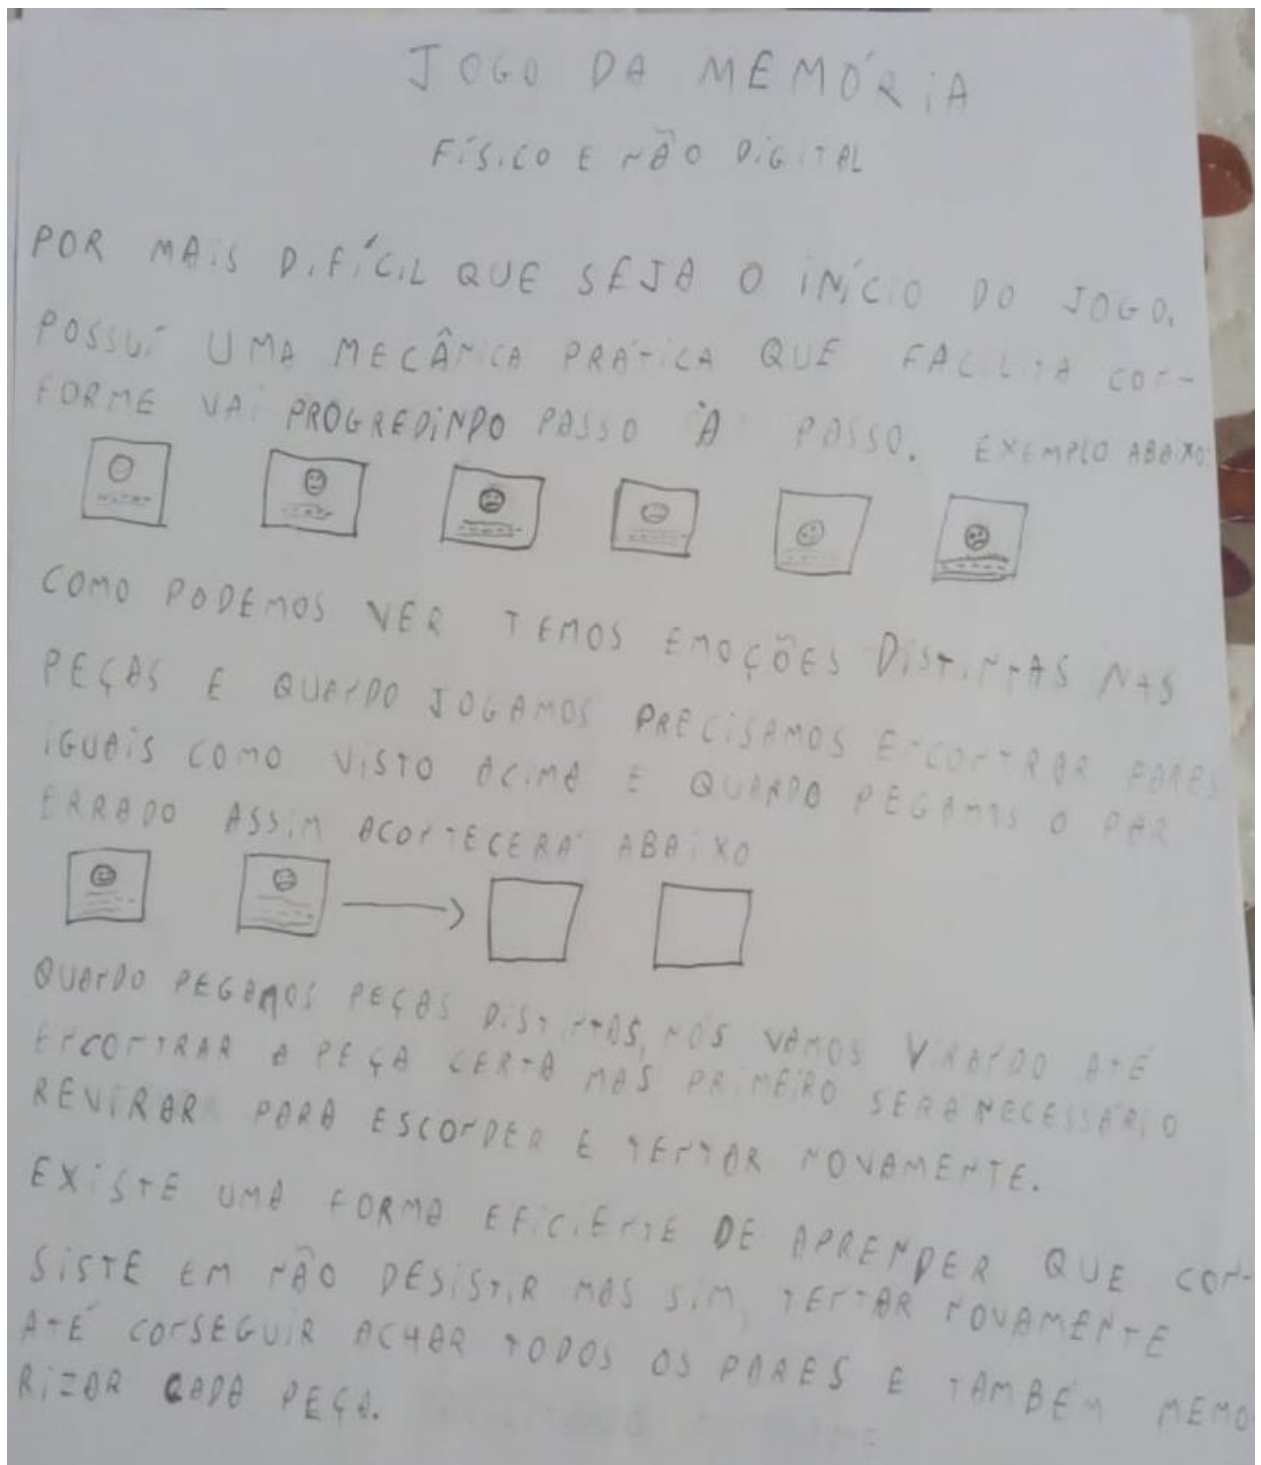 JOGO DA MEMÓRIA
FÍSICO E NÃO DIGITAL
POR MAIS DIFÍCIL QUE SEJA O INÍCIO DO JOGO,
POSSUÍ UMA MECÂNICA PRÁTICA QUE FACILITA CON-
FORME VAI PROGREDINDO PASSO À PASSO. EXEMPLO ABAIXO:
COMO PODEMOS VER TEMOS EMOÇÕES DISTINTAS NAS
PEÇAS E QUANDO JOGAMOS PRECISAMOS ENCONTRAR PARES
IGUAIS COMO VISTO ACIMA E QUANDO PEGAMOS O PAR
ERRADO ASSIM ACONTECERÁ ABAIXO
QUANDO PEGAMOS PEÇAS DISTINTAS, NÓS VAMOS VIRANDO ATÉ
ENCONTRAR A PEÇA CERTA MAS PRIMEIRO SERA NECESSÁRIO
REVIRAR PARA ESCONDER E TENTAR NOVAMENTE.
EXISTE UMA FORMA EFICIENTE DE APRENDER QUE CON-
SISTE EM NÃO DESISTIR MAS SIM, TENTAR NOVAMENTE
ATÉ CONSEGUIR ACHAR TODOS OS PARES E TAMBÉM MEMO
RIZAR CADA PEÇA.